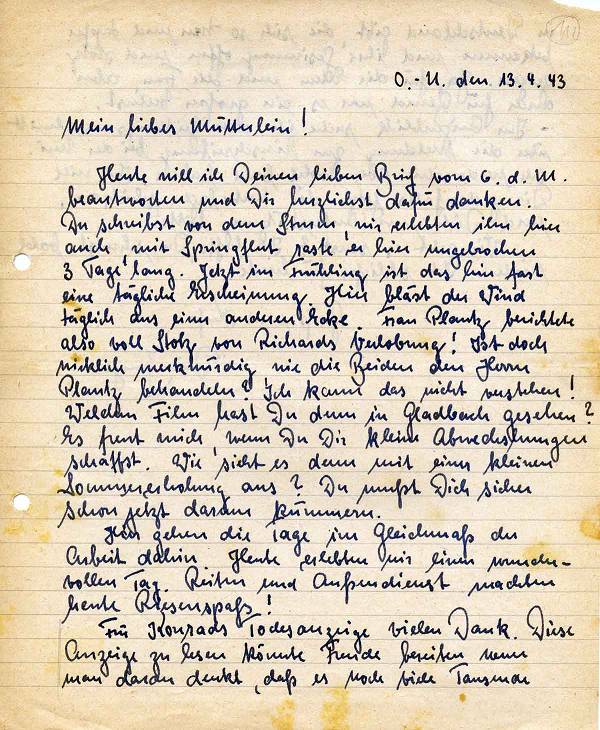 O.-U. den 13.4.43
Mein liebes Mütterlein!
Heute will ich Deinen lieben Brief vom 6. d. M.
beantworten und Dir herzlichst dafür danken.
Du schreibst von dem Sturm, wir erlebten ihn hier
auch, mit Springflut raste er hier ungebrochen
3 Tage lang. Jetzt im Frühling ist das hier fast
eine tägliche Erscheinung. Hier bläst der Wind
täglich aus einer anderen Ecke. Frau Plantz berichtete
also voll Stolz von Richards Verlobung! Ist doch
wirklich merkwürdig wie die Beiden den Herrn
Plantz behandeln! Ich kann das nicht verstehen!
Welchen Film hast Du denn in Gladbach gesehen?
Es freut mich, wenn Du Dir kleine Abwechslungen
schaffst. Wie sieht es denn mit einer kleinen
Sommererholung aus? Du mußt Dich sicher
schon jetzt darum kümmern.
Hier gehen die Tage im Gleichmaß der
Arbeit dahin. Heute erlebten wir einen wunder-
vollen Tag. Reiten und Außendienst machten
heute Riesenspaß!
Für Konrads Todesanzeige vielen Dank. Diese
Anzeige zu lesen könnte Freude bereiten wenn
man daran denkt, daß es noch viele